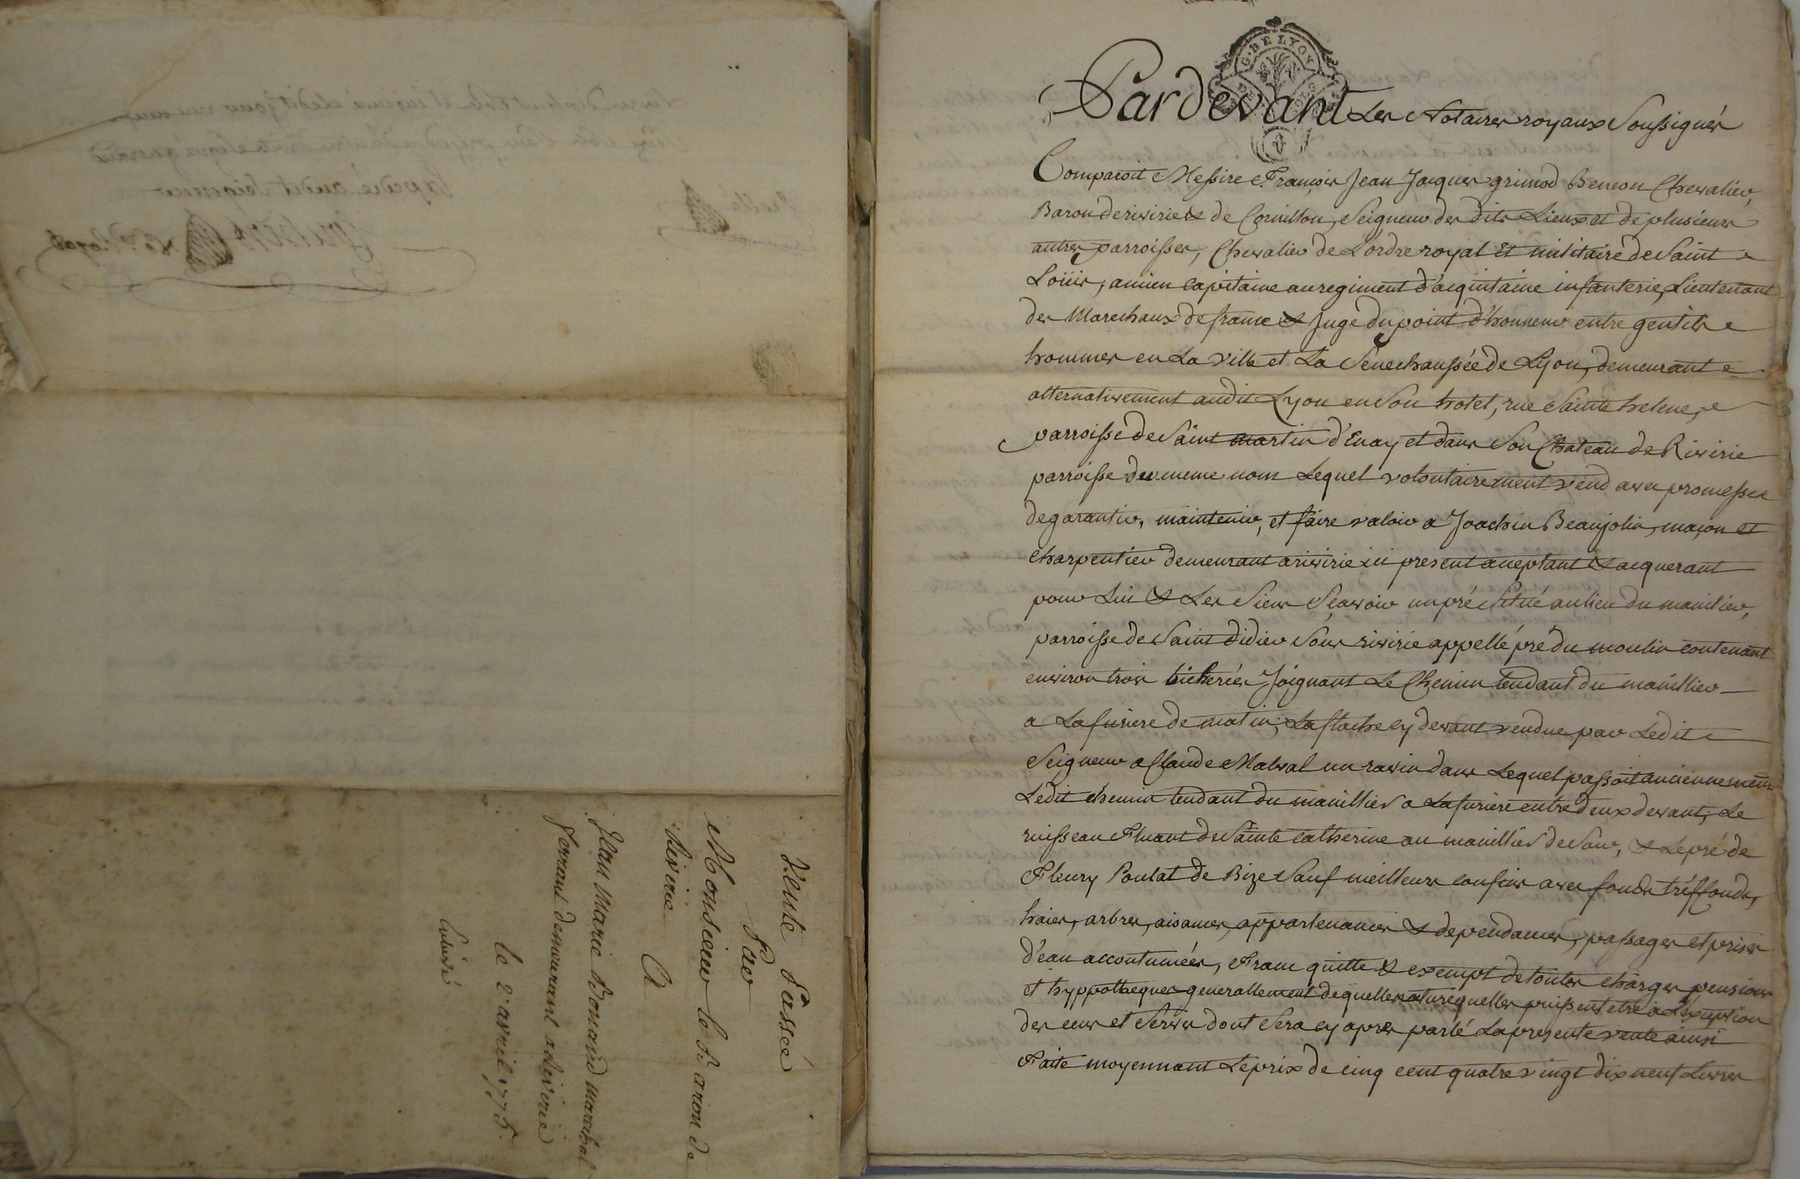 Vente Passée
Par
Monsieur le Baron de
Rivirie
A
Jean Marie Bonnard marechal
ferrant demeurant a Rivirie
le 2 avril 1776.
G. DE LYON
Pardevant Les Notaires royaux Soussignés
Comparoit Messire François Jean Jacques grimod Beneon Chevalier,
Baron de riviries & de Cornillon, Seigneur des dits Lieux et de plusieurs
autres parroisses, Chevalier de L'ordre royal Et militaire de Saint
Loüis, ancien capitaine au regiment d'acquitaine infanterie, Lieutenant
des Marechaux de france & Juge du point d'honneur entre gentils
hommes en La ville et La Sénéchaussée de Lyon, demeurant
alternativement audit Lyon en Son hotel, rue Sainte helene,
parroisse de Saint martin d'Enay et dans Son Chateau de Rivirie
parroisse du meme nom Lequel volontairement vend avec promesses
de garantir, maintenir, et faire valoir a Joachin Beaujolin, maçon et
charpentier demeurant a rivirie ici present acceptant & acquerant
pour Lui & Les Siens Sçavoir un pré Situé au lieu du manilier,
parroisse de Saint didier Sous rivirie appellé pré du moulin contenant
environ trois bicherées Joignant Le Chemin tendant du manillier
a Lafuriere de matin, La flache cy devant vendue par Ledit
Seigneur a Claude Malval un ravin dans Lequel passoit anciennement
Ledit chemin tendant du manillier a Lafuriere entre deux devants, Le
ruisseau Fluant de Sainte Catherine au manillier de Soir, & Le pré de
Fleury Poulat de Bize Sauf meilleurs confins avec fonds tréffonds,
haies, arbres, aisances, appartenances & dependances, passages et prises
d'eau accoutumées, Franc quitte & exempt de toutes charges pensions
et hyppotheques generallement de quelles natures quelles puissent etre a L'exception
des cens et Servis dont Sera cy apres parlé La presente vente ainsi
Faite moyennant Le prix de cinq cent quatre vingt dix neuf Livres